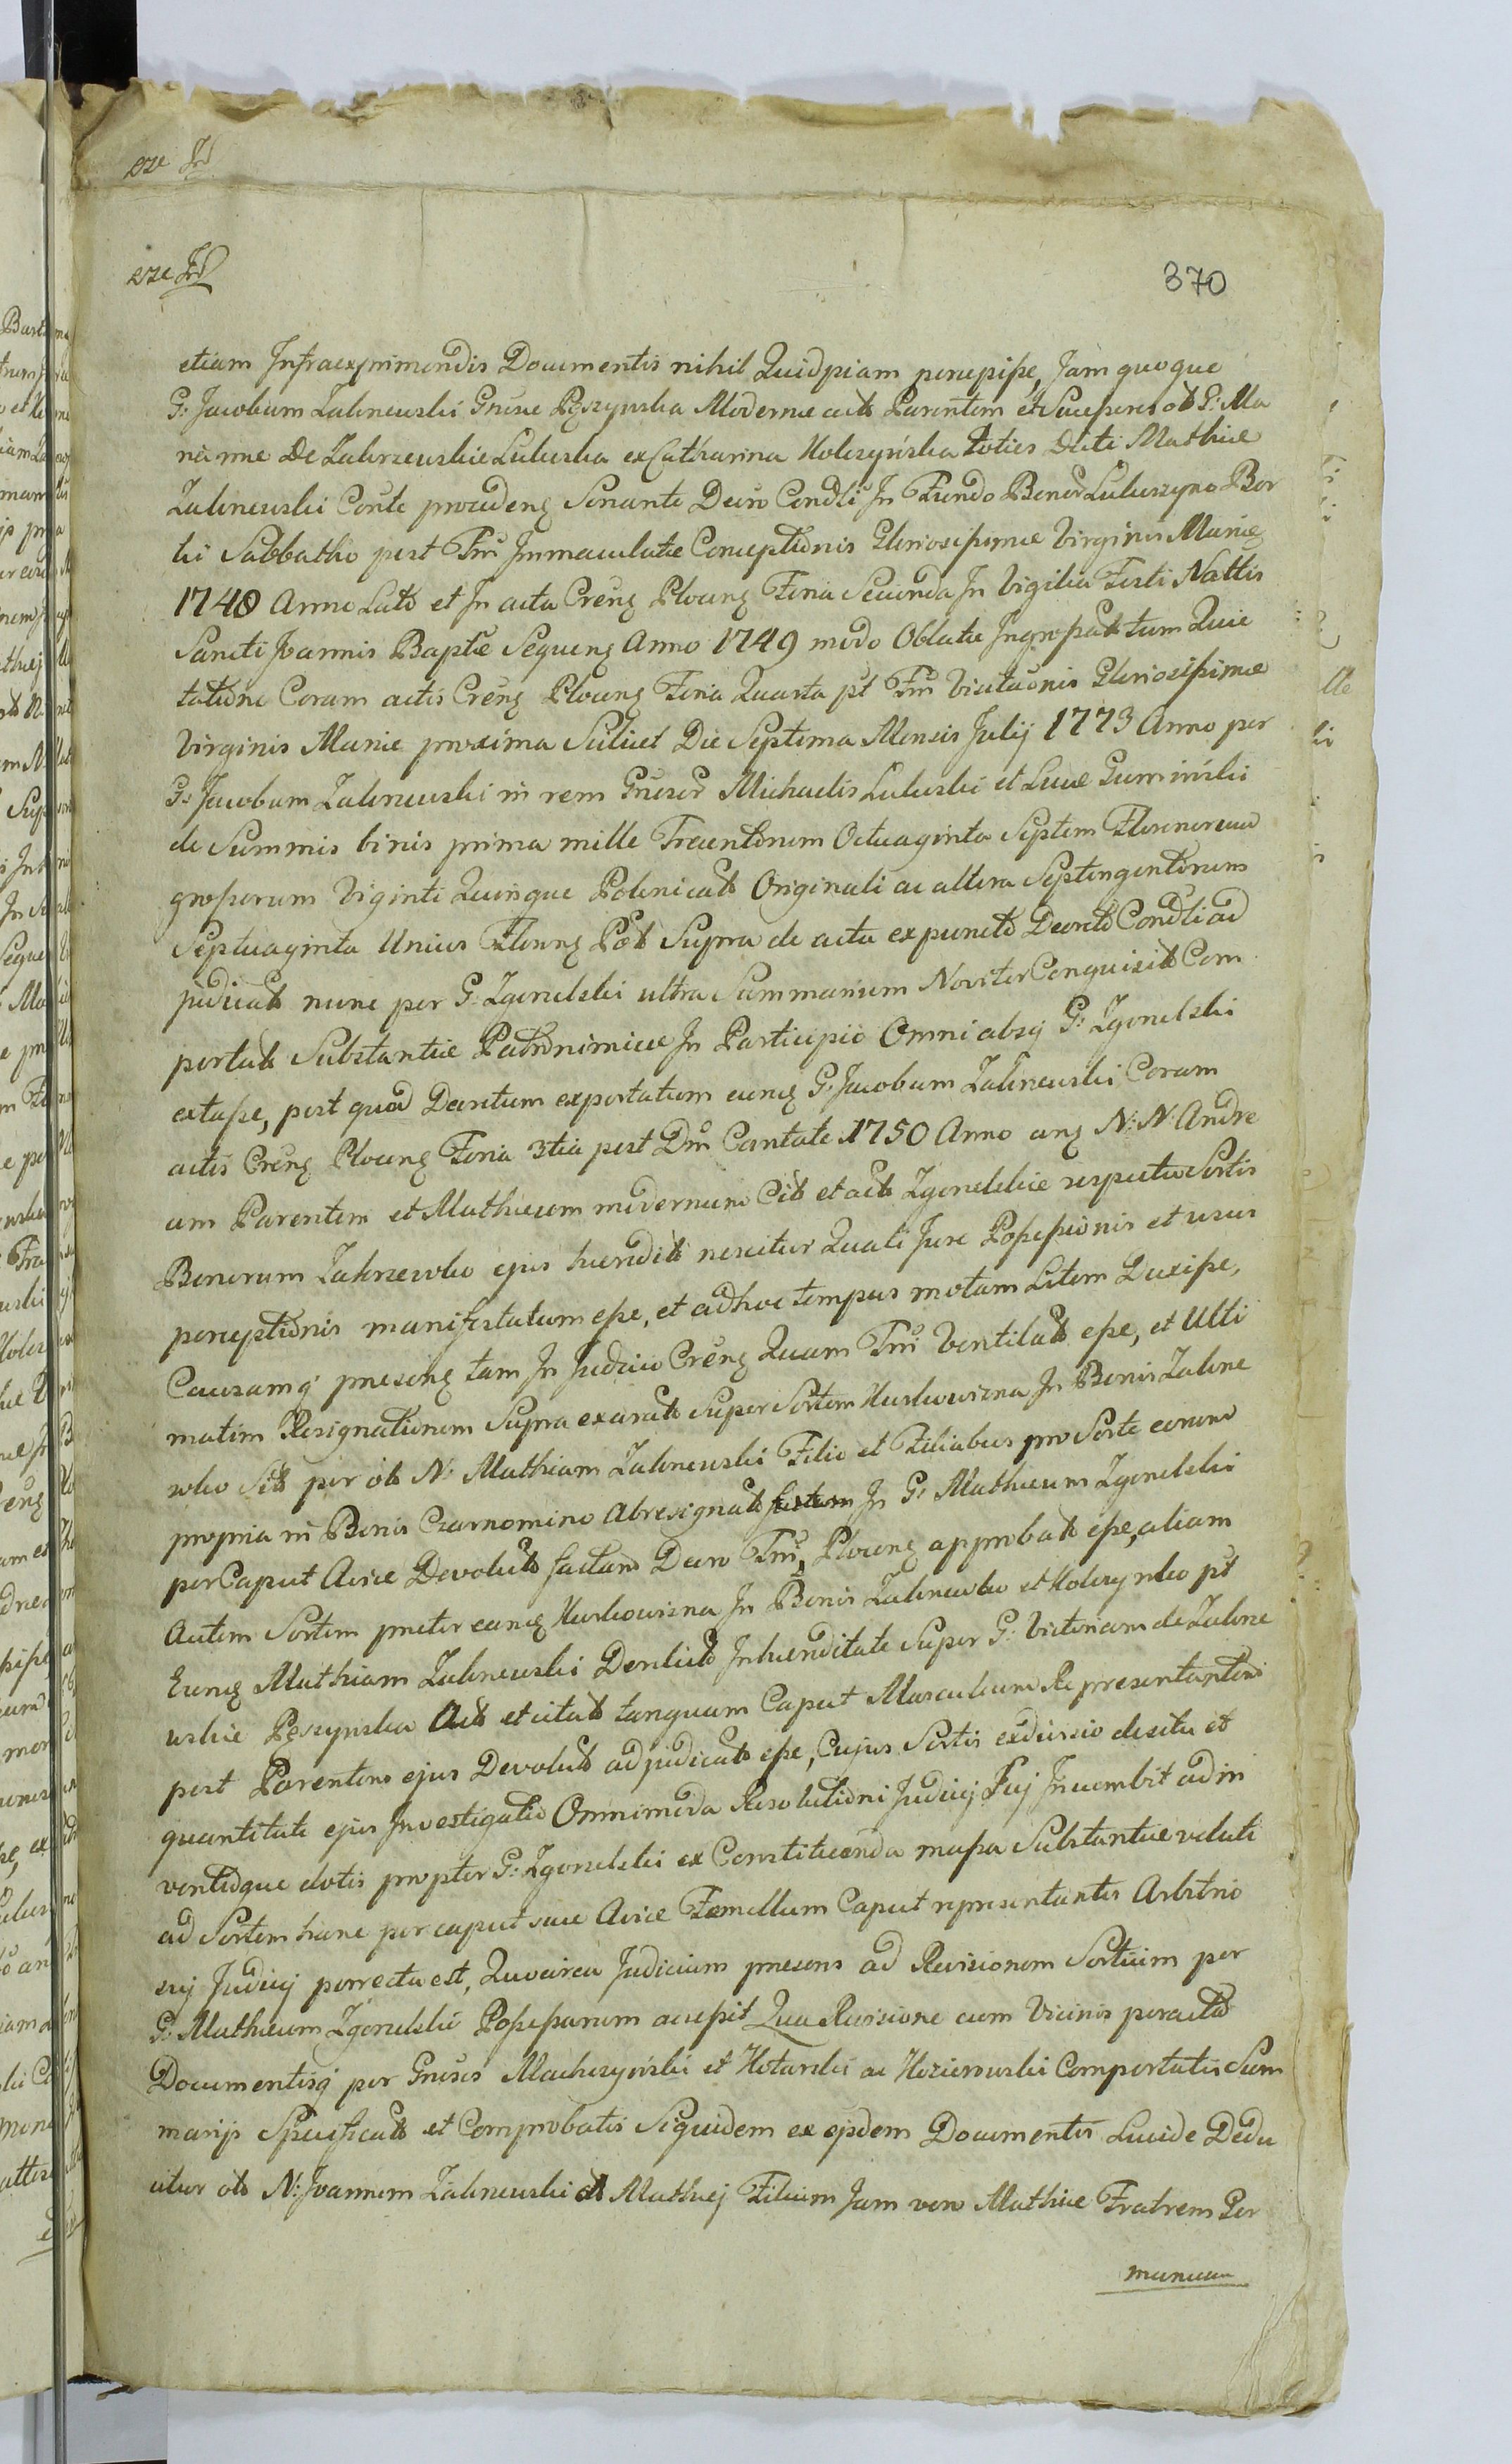 370
etiam Infraexprimendis Documentis nihil Quidpiam percepiße, Jam quoque
G: Jacobum Zakrzewski Gnsae Pęszynska Modernae actt Parentem et Succeßores ob G: Ma
rianne De Zakrzewskie Lukuska ex Catharina Kolczyńska toties dicti Mathiae
Zakrzewski Conte procedenę Senante Decro Condli In Fundo Bonor Lukuszyno Bor
ki Sabbatho post Fm Immaculatae Conceptionis Gloriosißimae Virginis Mariae
1748 Anno Lato et In acta Crenę Plocenę Feria Secunda In Vigilia Festi Nattis
Sancti Joannis Baptae Sequenę Anno 1749 modo Oblatae Ingroßatt tum Quie
tatione Coram actis Crenę Plocenę Feria Quarta pt Fm Visitaonis Gloriosißimae
Virginis Mariae proxima Scilicet Die Septima Mensis Julij 1773 Anno per
G: Jacobum Zakrzewski in rem Gnsor Michaelis Lukuski et Lucae Guminski
de Summis binis prima mille Trecentorum Octuaginta Septem Florenorum
großorum Viginti Quinque Polonicatt Originali ac altera Septingentorum
Septuaginta Unius Florenę Pott Supra de actu expuncto Decreto Condli ad
judicatt nunc per G: Zgorzelski ultra Summarium Noviter Conquisitt Com
portatt Substantiae Patrimonicae In Participio Omni absq G: Zgorzelski
extaße, post quod Decretum exportatum eunę G: Jacobum Zakrzewski Coram
actis Crenę Plocenę Feria 3tia post Dm Cantate 1750 Anno ang N: N: Andre
am Parentem et Mathaeum modernum Citt et actt Zgorzelskie respectu Sortis
Bonorum Zakrzewko ejus haeredit nescitur Quali Jure Poßeßionis et usus
perceptionis manifestatum eße, et adhoc tempus motam Litem Duxiße,
Causamq praesenę tam In Judicio Crenę Quam Tmi Ventilatt eße, et Ulti
matim Resignationem Supra exaratt Super Sortem Kurkowizna In Bonis Zakrze
wko Sitt per ob N: Mathiam Zakrzewski Filio et Filiabus pro Sorte eorum
propria in Bonis Czarnomino Abresignatt In G: Mathaeum Zgorzelski
per Caput Aviae Devolutt factam Decro Tmi Plocenę approbatt eße, aliam
Autem Sortem praeter eanę Kurkowizna In Bonis Zakrzewko et Kolczynko pt
Eunę Mathiam Zakrzewski Derelictt Inhaereditate Super G: Victoriam de Zakrze
wskie Pęszynska Actt et citatt tanquam Caput Masculeum Representantem
post Parentem ejus Devolutt adjudicatt eße, Cujus Sortis exdivisio desitu et
quantitate ejus Investigatio Omnimoda Resolutioni Judicij Sui Incumbit ad in
ventioque dotis propter G: Zgorzelski ex Constituenda maßa Substantiae veluti
ad Sortem hanc per caput suae Aviae Faemellum Caput repraesentantis Arbitrio
suj Judicij porrecta est, Quocirca Judicium praesens ad Revisionem Sortium per
G: Mathaeum Zgorzelski Poßeßarum acceßit Qua Revisione cum Vicinis peracta
Documentisq per Gnsos Machczyński et Kotarski ac Kozierowski Comportatis Sum
marijs Specificatt et Comprobatis Siquidem ex ejsdem Documentis Lucide Dedu
citur ob N: Joannem Zakrzewski ob Mathiej Filium Jam vero Mathiae Fratrem Ger
manum